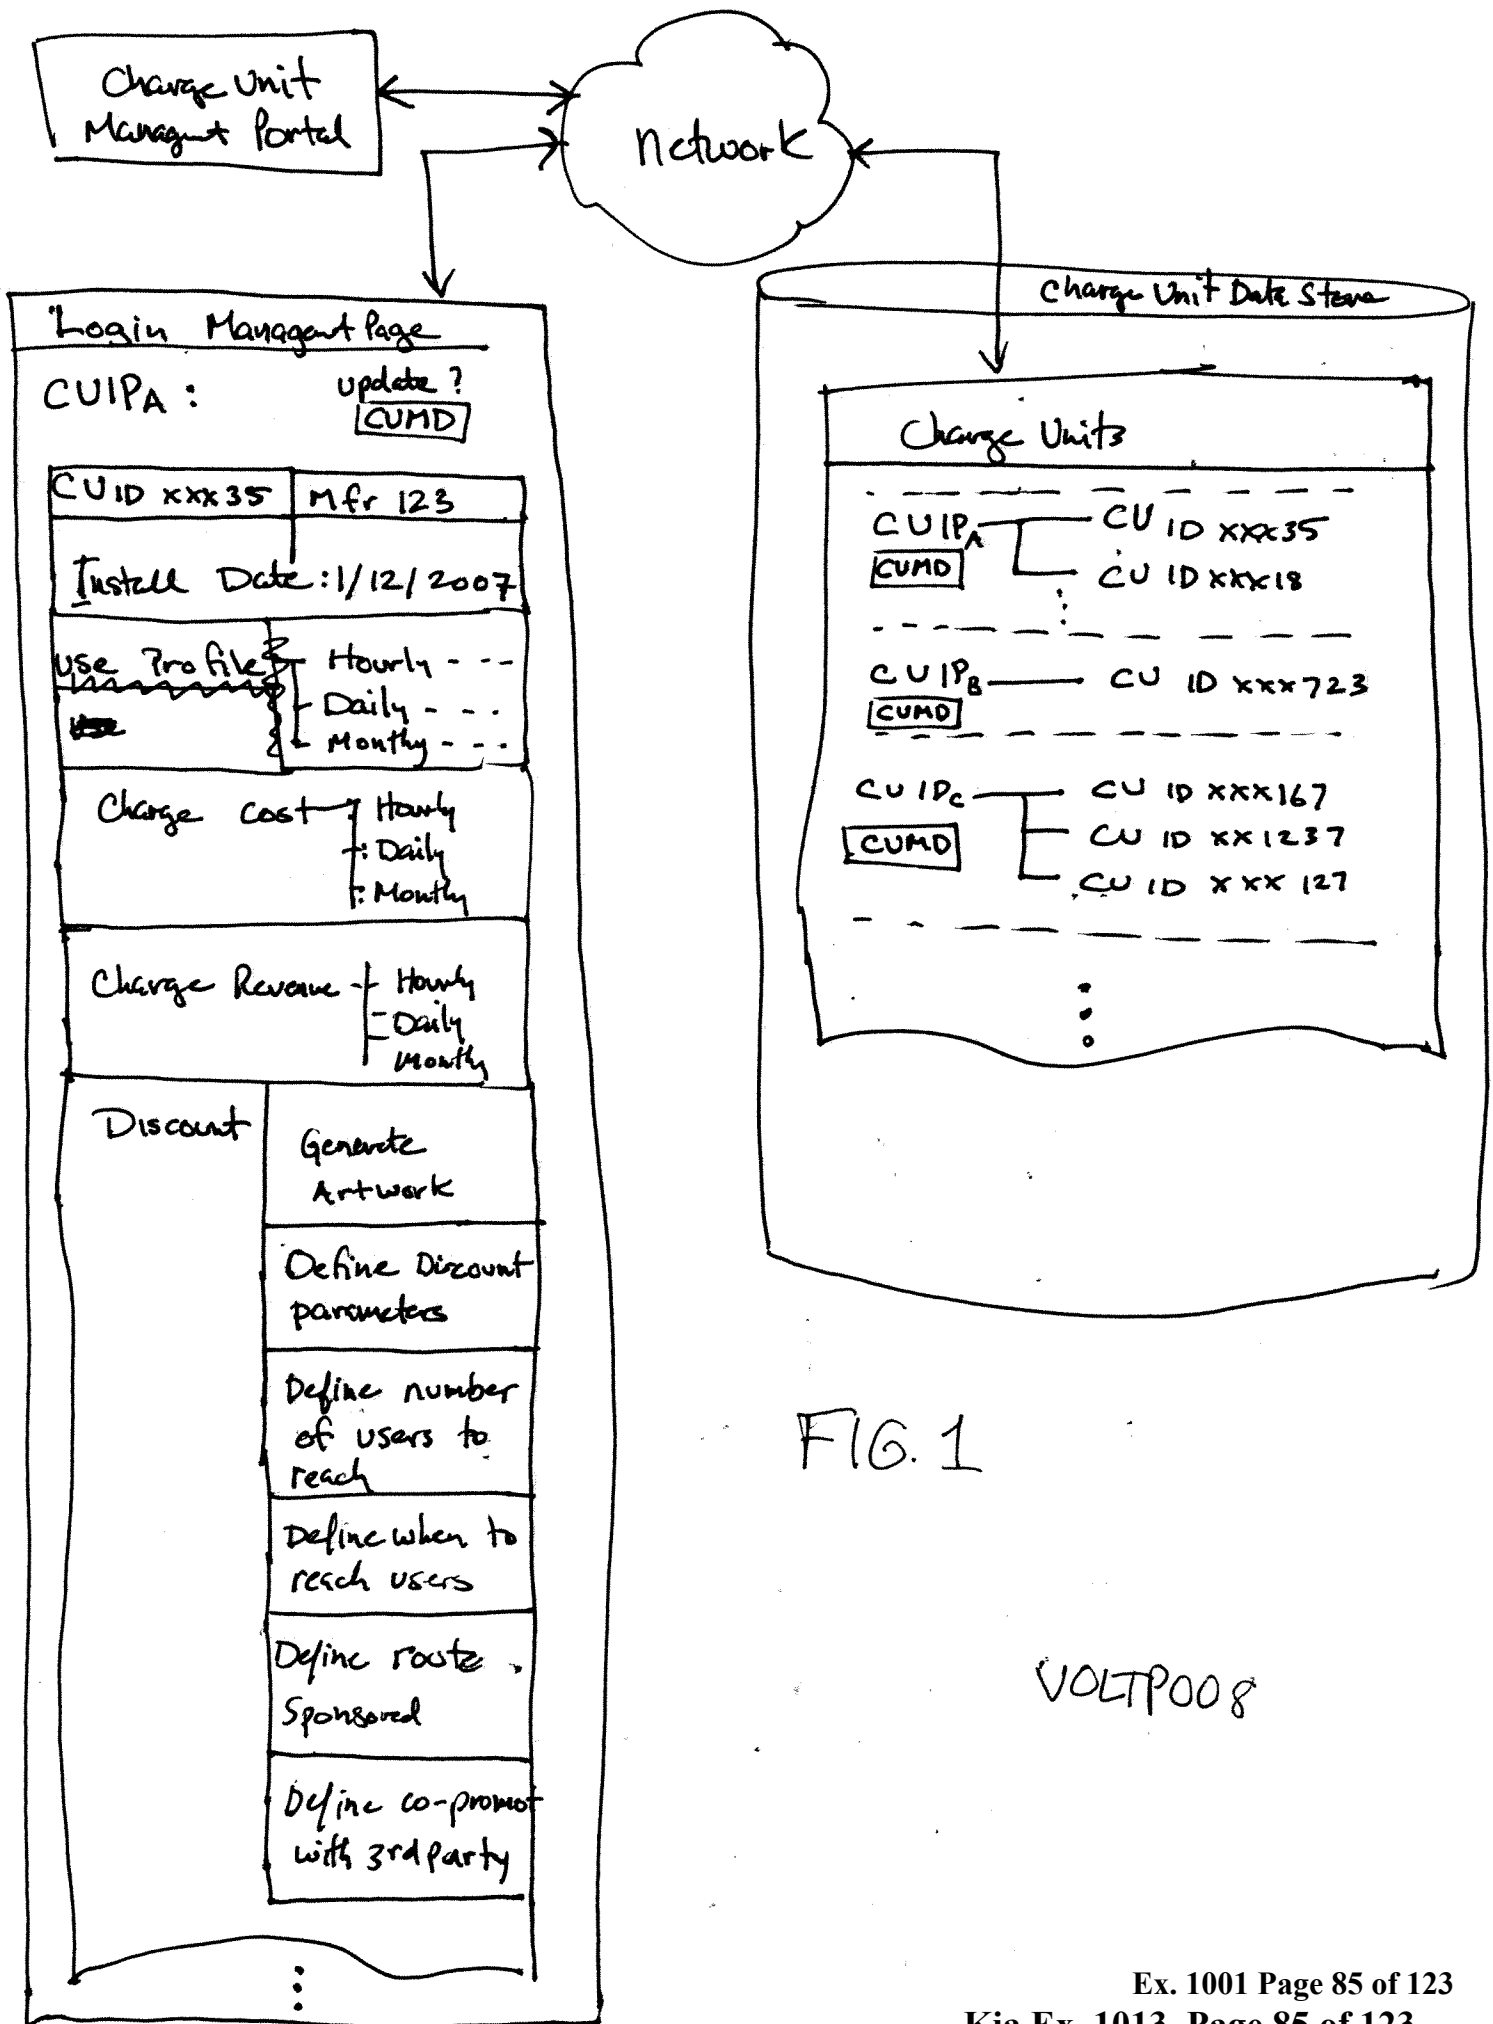 Charge Unit
Managmt Portal
Network
Login Managemt Page
CUIPA :
update ?
CUMD
CU ID xxx35
Mfr 123
Install Date: 1/12/2007
use Profile
Hourly - - -
Daily - - -
Monthy - - -
Charge cost
Hourly
: Daily
: Monthy
Charge Revenue
Hourly
Daily
Monthy
Discount
Generate
Artwork
Define Discount
parameters
Define number
of users to
reach
Define when to
reach users
Define route
Sponsored
Define co-promot
with 3rd Party
Charge Unit Data Store
Charge Units
CUIPA
CU ID xxx35
CUMD
CU ID xxx18
CUIPB
CU ID xxx723
CUMD
CUIPC
CU ID xxx167
CUMD
CU ID xx1237
CU ID xxx 127
FIG. 1
VOLTP008
Ex. 1001 Page 85 of 123
Kia Ex. 1013, Page 85 of 123